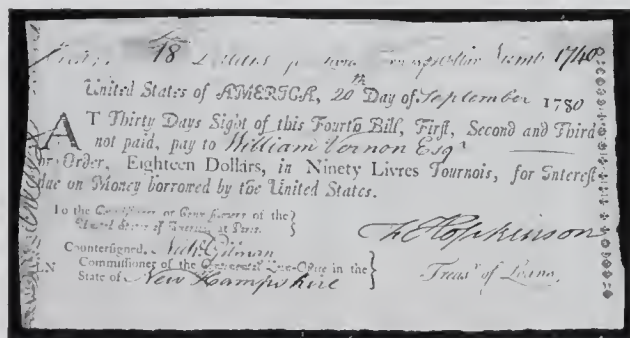 18 Dollars 1740
United States of AMERICA, 20th Day of September 1780
AT Thirty Days Sight of this Fourth Bill, First, Second and Third
not paid, pay to William Vernon Esqr
or Order, Eighteen Dollars, in Ninety Livres Tournois, for Interest
due on Money borrowed by the United States.
To the Commissioner or Commissioners of the
United States of America at Paris.
F Hopkinson
Countersigned, Nichs Gilman
Commissioner of the Continental Loan-Office in the
State of New Hampshire
Treasr of Loans.